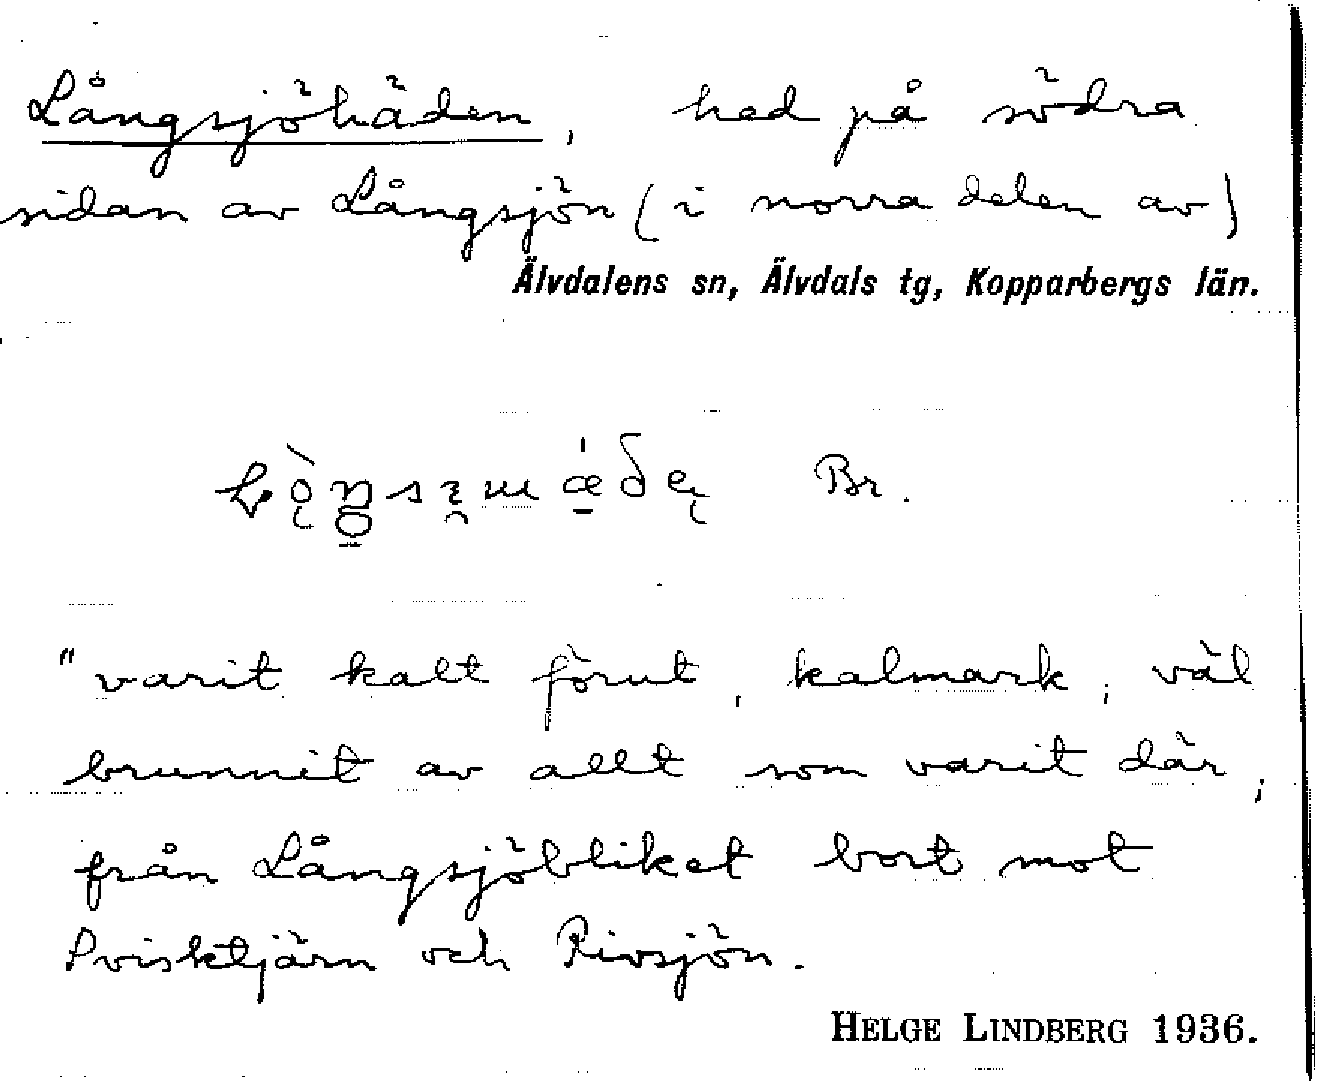 Långsjöhäden, hed på södra
sidan av Långsjön (i norra delen av)
Älvdalens sn, Älvdals tg, Kopparbergs län.
Br.
"varit kalt förut, kalmark; väl
brunnit av allt som varit där;
från Långsjöbliket bort mot
och Rivsjön.
HELGE LINDBERG 1936.